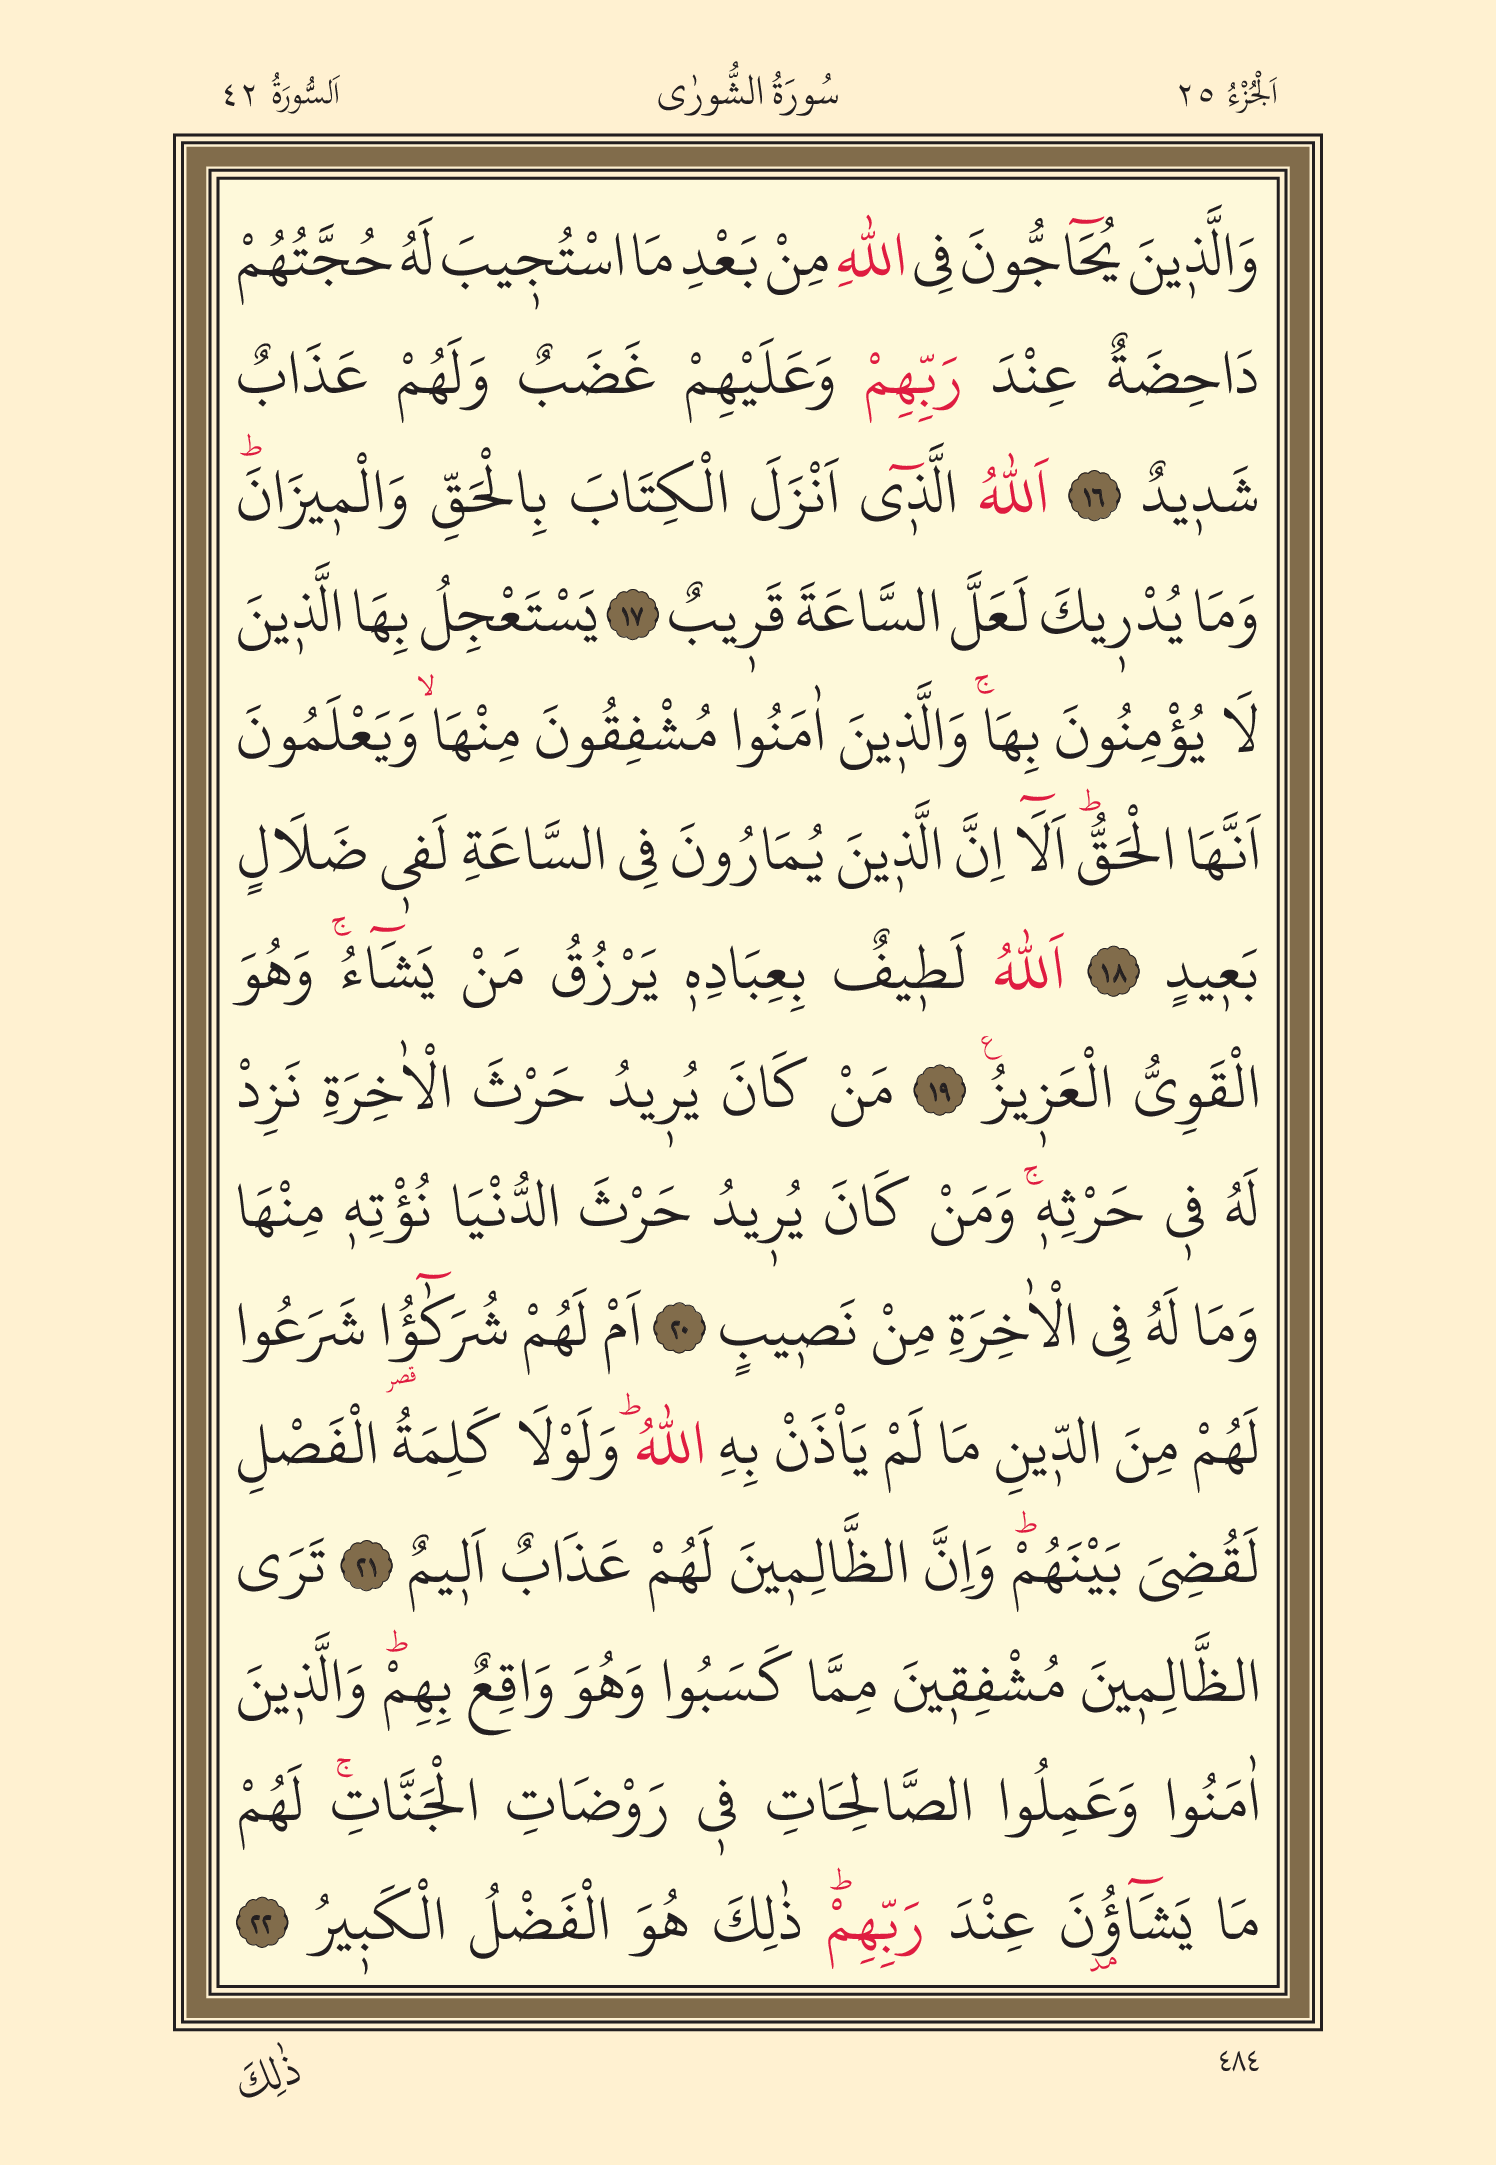 اَلْجُزْءُ ٢٥
سُورَةُ الشُّورٰى
اَلسُّورَةُ ٤٢
وَالَّذ۪ينَ يُحَٓاجُّونَ فِى اللّٰهِ مِنْ بَعْدِ مَا اسْتُج۪يبَ لَهُ حُجَّتُهُمْ
دَاحِضَةٌ عِنْدَ رَبِّهِمْ وَعَلَيْهِمْ غَضَبٌ وَلَهُمْ عَذَابٌ
شَد۪يدٌ ﴿١٦﴾ اَللّٰهُ الَّذ۪ٓى اَنْزَلَ الْكِتَابَ بِالْحَقِّ وَالْم۪يزَانَۜ
وَمَا يُدْر۪يكَ لَعَلَّ السَّاعَةَ قَر۪يبٌ ﴿١٧﴾ يَسْتَعْجِلُ بِهَا الَّذ۪ينَ
لَا يُؤْمِنُونَ بِهَاۚ وَالَّذ۪ينَ اٰمَنُوا مُشْفِقُونَ مِنْهَاۙ وَيَعْلَمُونَ
اَنَّهَا الْحَقُّۜ اَلَٓا اِنَّ الَّذ۪ينَ يُمَارُونَ فِى السَّاعَةِ لَف۪ى ضَلَالٍ
بَع۪يدٍ ﴿١٨﴾ اَللّٰهُ لَط۪يفٌ بِعِبَادِه۪ يَرْزُقُ مَنْ يَشَٓاءُۚ وَهُوَ
الْقَوِىُّ الْعَز۪يزُ۟ ﴿١٩﴾ مَنْ كَانَ يُر۪يدُ حَرْثَ الْاٰخِرَةِ نَزِدْ
لَهُ ف۪ى حَرْثِه۪ۚ وَمَنْ كَانَ يُر۪يدُ حَرْثَ الدُّنْيَا نُؤْتِه۪ مِنْهَا
وَمَا لَهُ فِى الْاٰخِرَةِ مِنْ نَص۪يبٍ ﴿٢٠﴾ اَمْ لَهُمْ شُرَكٰٓؤُا شَرَعُوا
قصر
لَهُمْ مِنَ الدّ۪ينِ مَا لَمْ يَاْذَنْ بِهِ اللّٰهُۜ وَلَوْلَا كَلِمَةُ الْفَصْلِ
لَقُضِىَ بَيْنَهُمْۜ وَاِنَّ الظَّالِم۪ينَ لَهُمْ عَذَابٌ اَل۪يمٌ ﴿٢١﴾ تَرَى
الظَّالِم۪ينَ مُشْفِق۪ينَ مِمَّا كَسَبُوا وَهُوَ وَاقِعٌ بِهِمْۜ وَالَّذ۪ينَ
اٰمَنُوا وَعَمِلُوا الصَّالِحَاتِ ف۪ى رَوْضَاتِ الْجَنَّاتِۚ لَهُمْ
مَا يَشَٓاؤُنَ عِنْدَ رَبِّهِمْۜ ذٰلِكَ هُوَ الْفَضْلُ الْكَب۪يرُ ﴿٢٢﴾
مد
٤٨٤
ذٰلِكَ